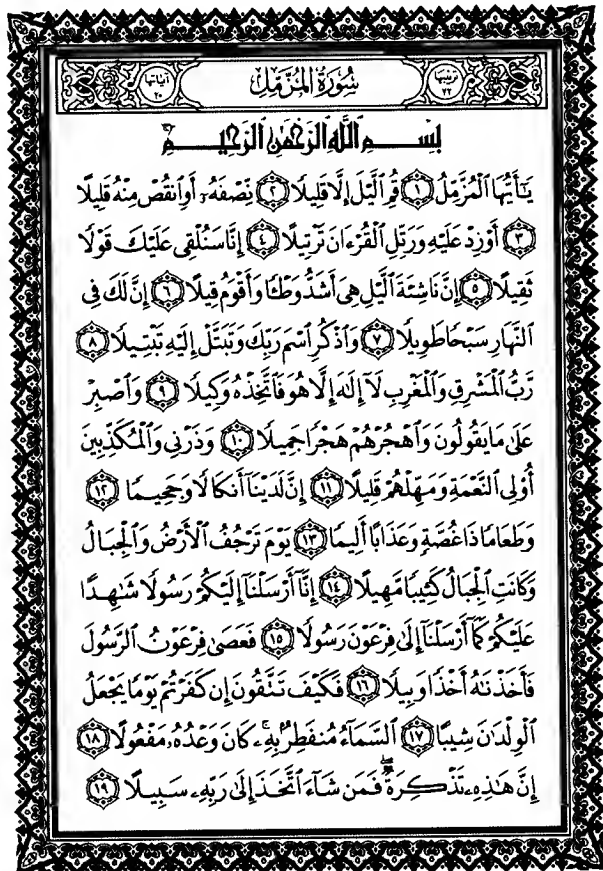 ترتيبها ٧٣ سُورَةُ المُزَّمِّلِ آياتها ٢٠
بِسْمِ ٱللَّهِ ٱلرَّحْمَٰنِ ٱلرَّحِيمِ
يَٰٓأَيُّهَا ٱلْمُزَّمِّلُ ١ قُمِ ٱلَّيْلَ إِلَّا قَلِيلًا ٢ نِّصْفَهُۥٓ أَوِ ٱنقُصْ مِنْهُ قَلِيلًا
٣ أَوْ زِدْ عَلَيْهِ وَرَتِّلِ ٱلْقُرْءَانَ تَرْتِيلًا ٤ إِنَّا سَنُلْقِى عَلَيْكَ قَوْلًا
ثَقِيلًا ٥ إِنَّ نَاشِئَةَ ٱلَّيْلِ هِىَ أَشَدُّ وَطْـًٔا وَأَقْوَمُ قِيلًا ٦ إِنَّ لَكَ فِى
ٱلنَّهَارِ سَبْحًا طَوِيلًا ٧ وَٱذْكُرِ ٱسْمَ رَبِّكَ وَتَبَتَّلْ إِلَيْهِ تَبْتِيلًا ٨
رَّبُّ ٱلْمَشْرِقِ وَٱلْمَغْرِبِ لَآ إِلَٰهَ إِلَّا هُوَ فَٱتَّخِذْهُ وَكِيلًا ٩ وَٱصْبِرْ
عَلَىٰ مَا يَقُولُونَ وَٱهْجُرْهُمْ هَجْرًا جَمِيلًا ١٠ وَذَرْنِى وَٱلْمُكَذِّبِينَ
أُو۟لِى ٱلنَّعْمَةِ وَمَهِّلْهُمْ قَلِيلًا ١١ إِنَّ لَدَيْنَآ أَنكَالًا وَجَحِيمًا ١٢
وَطَعَامًا ذَا غُصَّةٍ وَعَذَابًا أَلِيمًا ١٣ يَوْمَ تَرْجُفُ ٱلْأَرْضُ وَٱلْجِبَالُ
وَكَانَتِ ٱلْجِبَالُ كَثِيبًا مَّهِيلًا ١٤ إِنَّآ أَرْسَلْنَآ إِلَيْكُمْ رَسُولًا شَٰهِدًا
عَلَيْكُمْ كَمَآ أَرْسَلْنَآ إِلَىٰ فِرْعَوْنَ رَسُولًا ١٥ فَعَصَىٰ فِرْعَوْنُ ٱلرَّسُولَ
فَأَخَذْنَٰهُ أَخْذًا وَبِيلًا ١٦ فَكَيْفَ تَتَّقُونَ إِن كَفَرْتُمْ يَوْمًا يَجْعَلُ
ٱلْوِلْدَٰنَ شِيبًا ١٧ ٱلسَّمَآءُ مُنفَطِرٌۢ بِهِۦ ۚ كَانَ وَعْدُهُۥ مَفْعُولًا ١٨
إِنَّ هَٰذِهِۦ تَذْكِرَةٌ ۖ فَمَن شَآءَ ٱتَّخَذَ إِلَىٰ رَبِّهِۦ سَبِيلًا ١٩